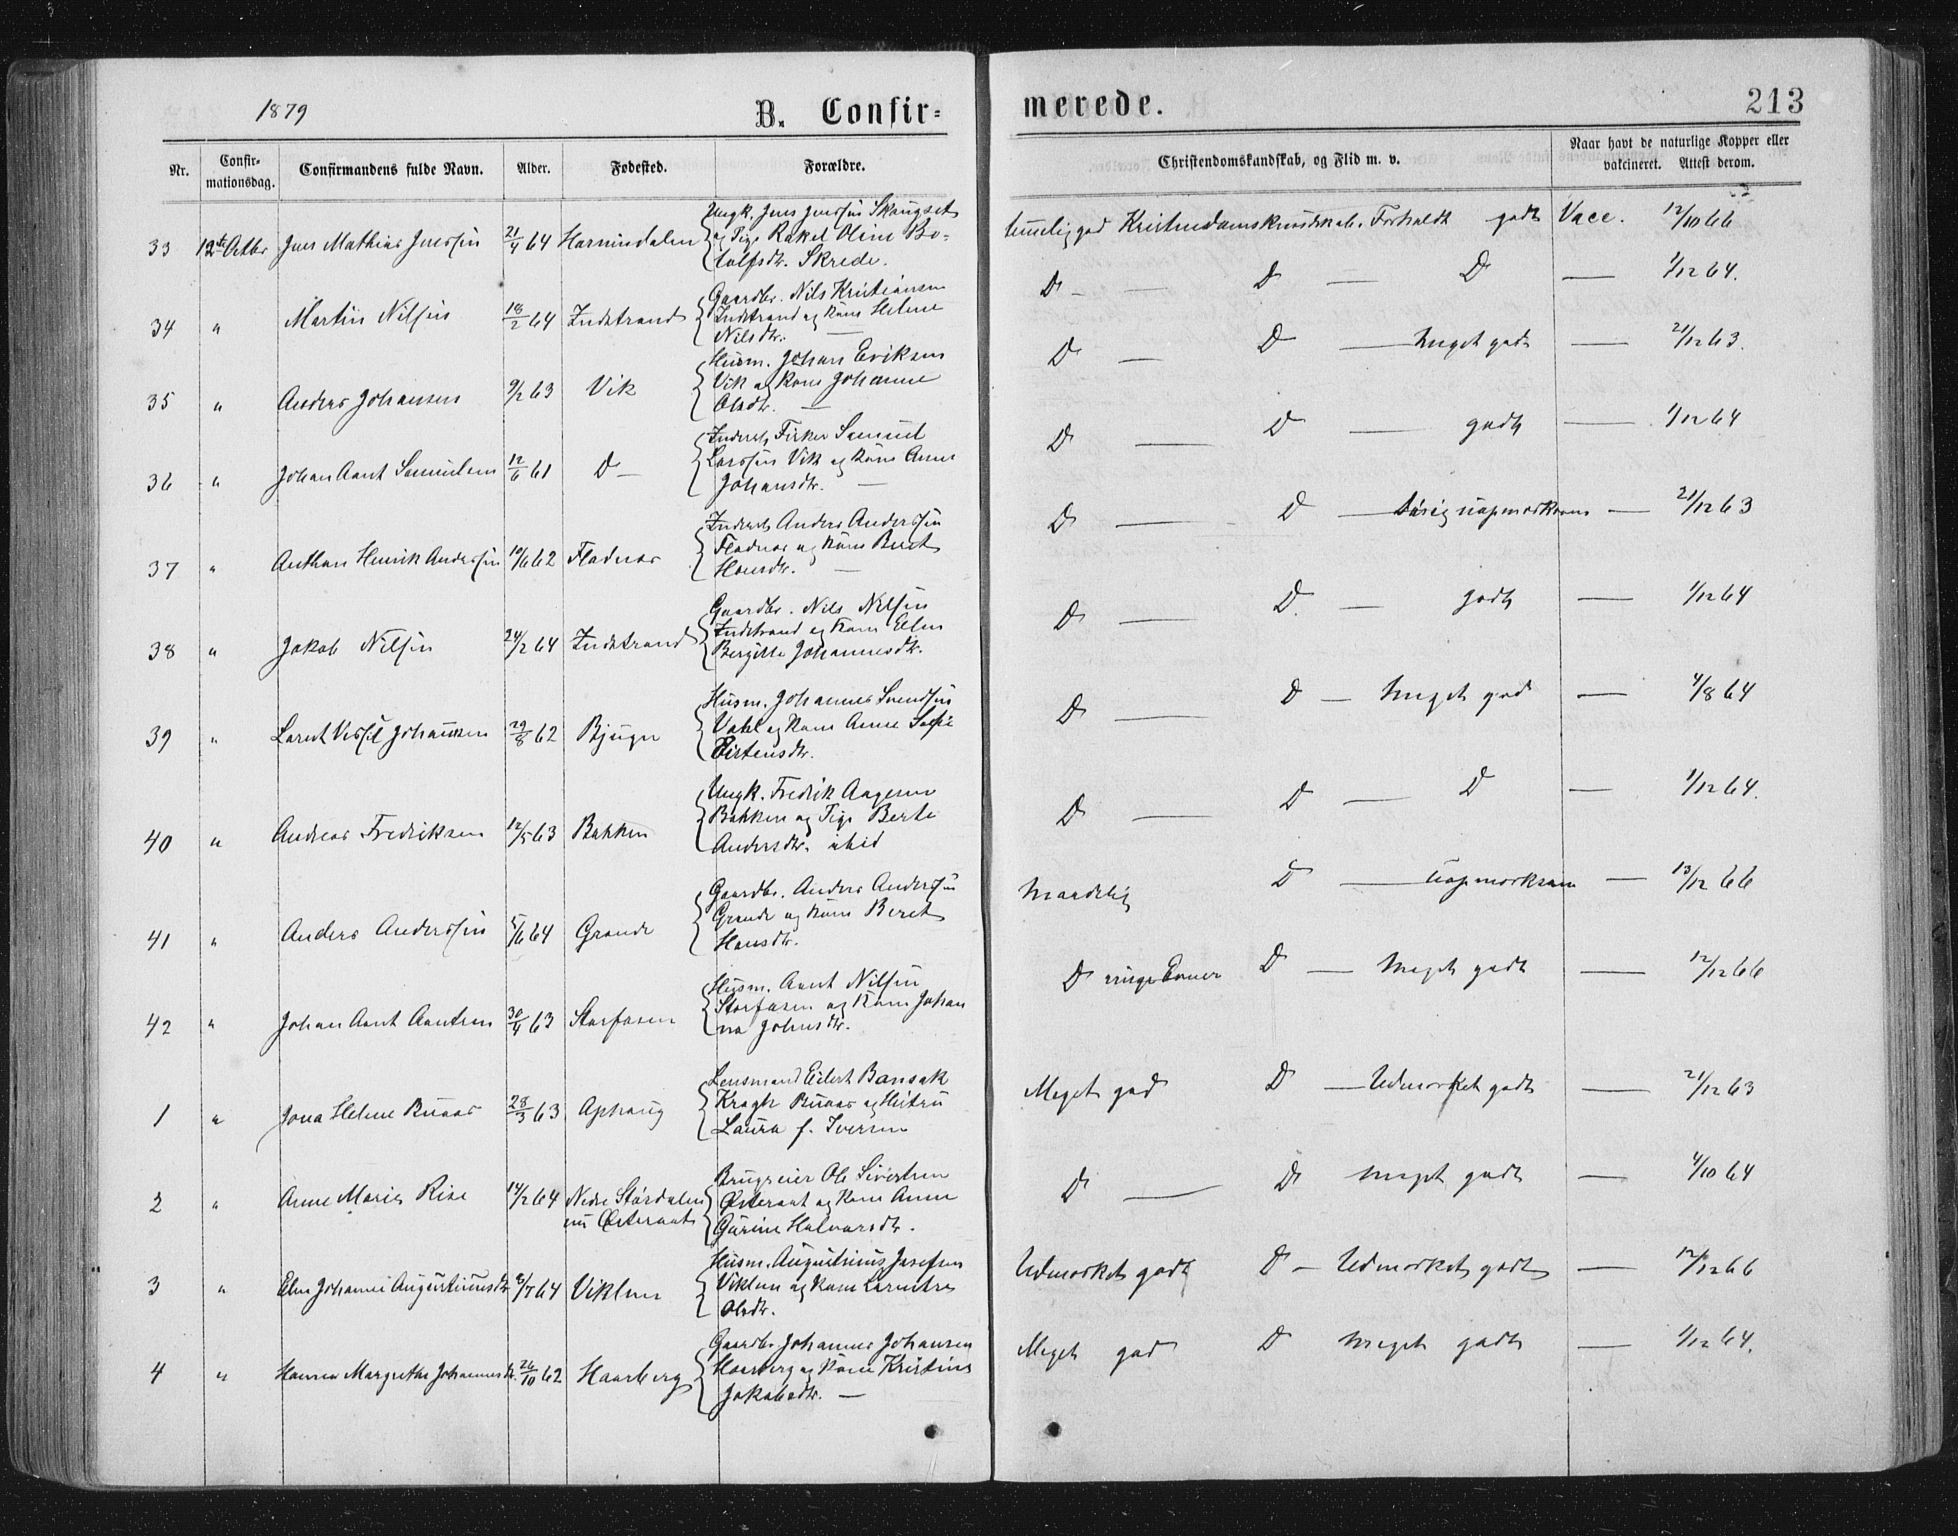 1879
B. Confir-
merede.
213
Nr.
Confir-
mationsdag.
Confirmandens fulde Navn.
Alder.
Fødested.
Forældre.
Christendomskandskab, og Flid m. v.
Naar havt de naturlige Kopper eller
vakcineret. Attest derom.
33 12te Octbr Jens Mathias Jenssen 21/4 64 Hornindalen
Ungk. Jens Jenssen Skougset
og Pige Rakel Oline Bo-
tolfsdtr. Skrede.
temelig god Kristendomskundskab. Forholdt godt Vacc. 12/10 66
34 " Martin Nilssen 18/2 64 Indstrand
Gaardbr. Nils Kristiansen
Indstrand og Kone Helene
Nilsdtr. —
D — D — D — 1/12 64.
35 " Anders Johansen 9/2 63 Vik
Husm. Johan Eriksen
Vik og Kone Johanne
Olsdtr. —
D — D — meget godt — 21/12 63.
36 " Johan Aant Samuelsen 12/6 61 D —
Inderst, Fisker Samuel
Larssen Vik og Kone Anne
Johansdtr. —
D — D — godt — 1/12 64
37 " Anthon Henrik Anderssen 19/6 62 Fladnes
Inderst Anders Anderssen
Fladnes og Kone Beret
Hansdtr. —
D — D — uopmærksom — 21/12 63
38 " Jakob Nilssen 24/2 64 Indstrand
Gaardbr. Nils Nilssen
Indstrand og Kone Ellen
Bergitte Johannesdtr.
D — D. — godt — 1/12 64
39 " Lornt Johansen 29/8 62 Bjugn
Husm. Johannes Svendsen
og Kone Anne Sofie
Eistensdtr.
D — D — meget god — 4/8 64
40 " Andreas Fredriksen 12/5 63 Bakken
Ungk. Fredrik Aagesen
Bakken og Pige Berte
Andersdtr. ibid
D — D — D — 1/12 64.
41 " Anders Anderssen 5/6 64 Grande
Gaardbr. Anders Anderssen
Grande og Kone Beret
Hansdtr.
Maadelig D — uopmærksom — 13/12 66
42 " Johan Aant Aantsen 30/4 63 Storfosen
Husm. Aant Nilssen
Storfosen og Kone Johan
na Johnsdtr.
D ringe Evner D — meget godt — 12/12 66
1 " Jona Helene Buaas 28/3 63 Ophaug
Lensmand Eilert Bonsak
Kragh Buaas og Hustru
Laura f. Iversen
Meget god D — Udmærket godt — 21/12 63
2 " Anne Marie Rise 14/2 64 Nedre Størdalen
nu Østeraat
Brugseier Ole Sivertsen
Østeraat og Kone Anne
Gurine Halvarsdtr.
D — D meget godt — 4/10 64
3 " Elen Johanne Augustinusdtr 2/7 64 Viklem
Husm. Augustinus Josefsen
Viklem og Kone Lorentse
Olsdtr.
Udmærket godt D — Udmærket godt — 12/12 66
4 " Hanna Margrethe Johannesdtr. 26/10 62 Haarberg
Gaardbr. Johannes Johansen
Haarberg og Kone Kristine
Jakobsdtr. —
Meget god D meget godt — 1/12 64.